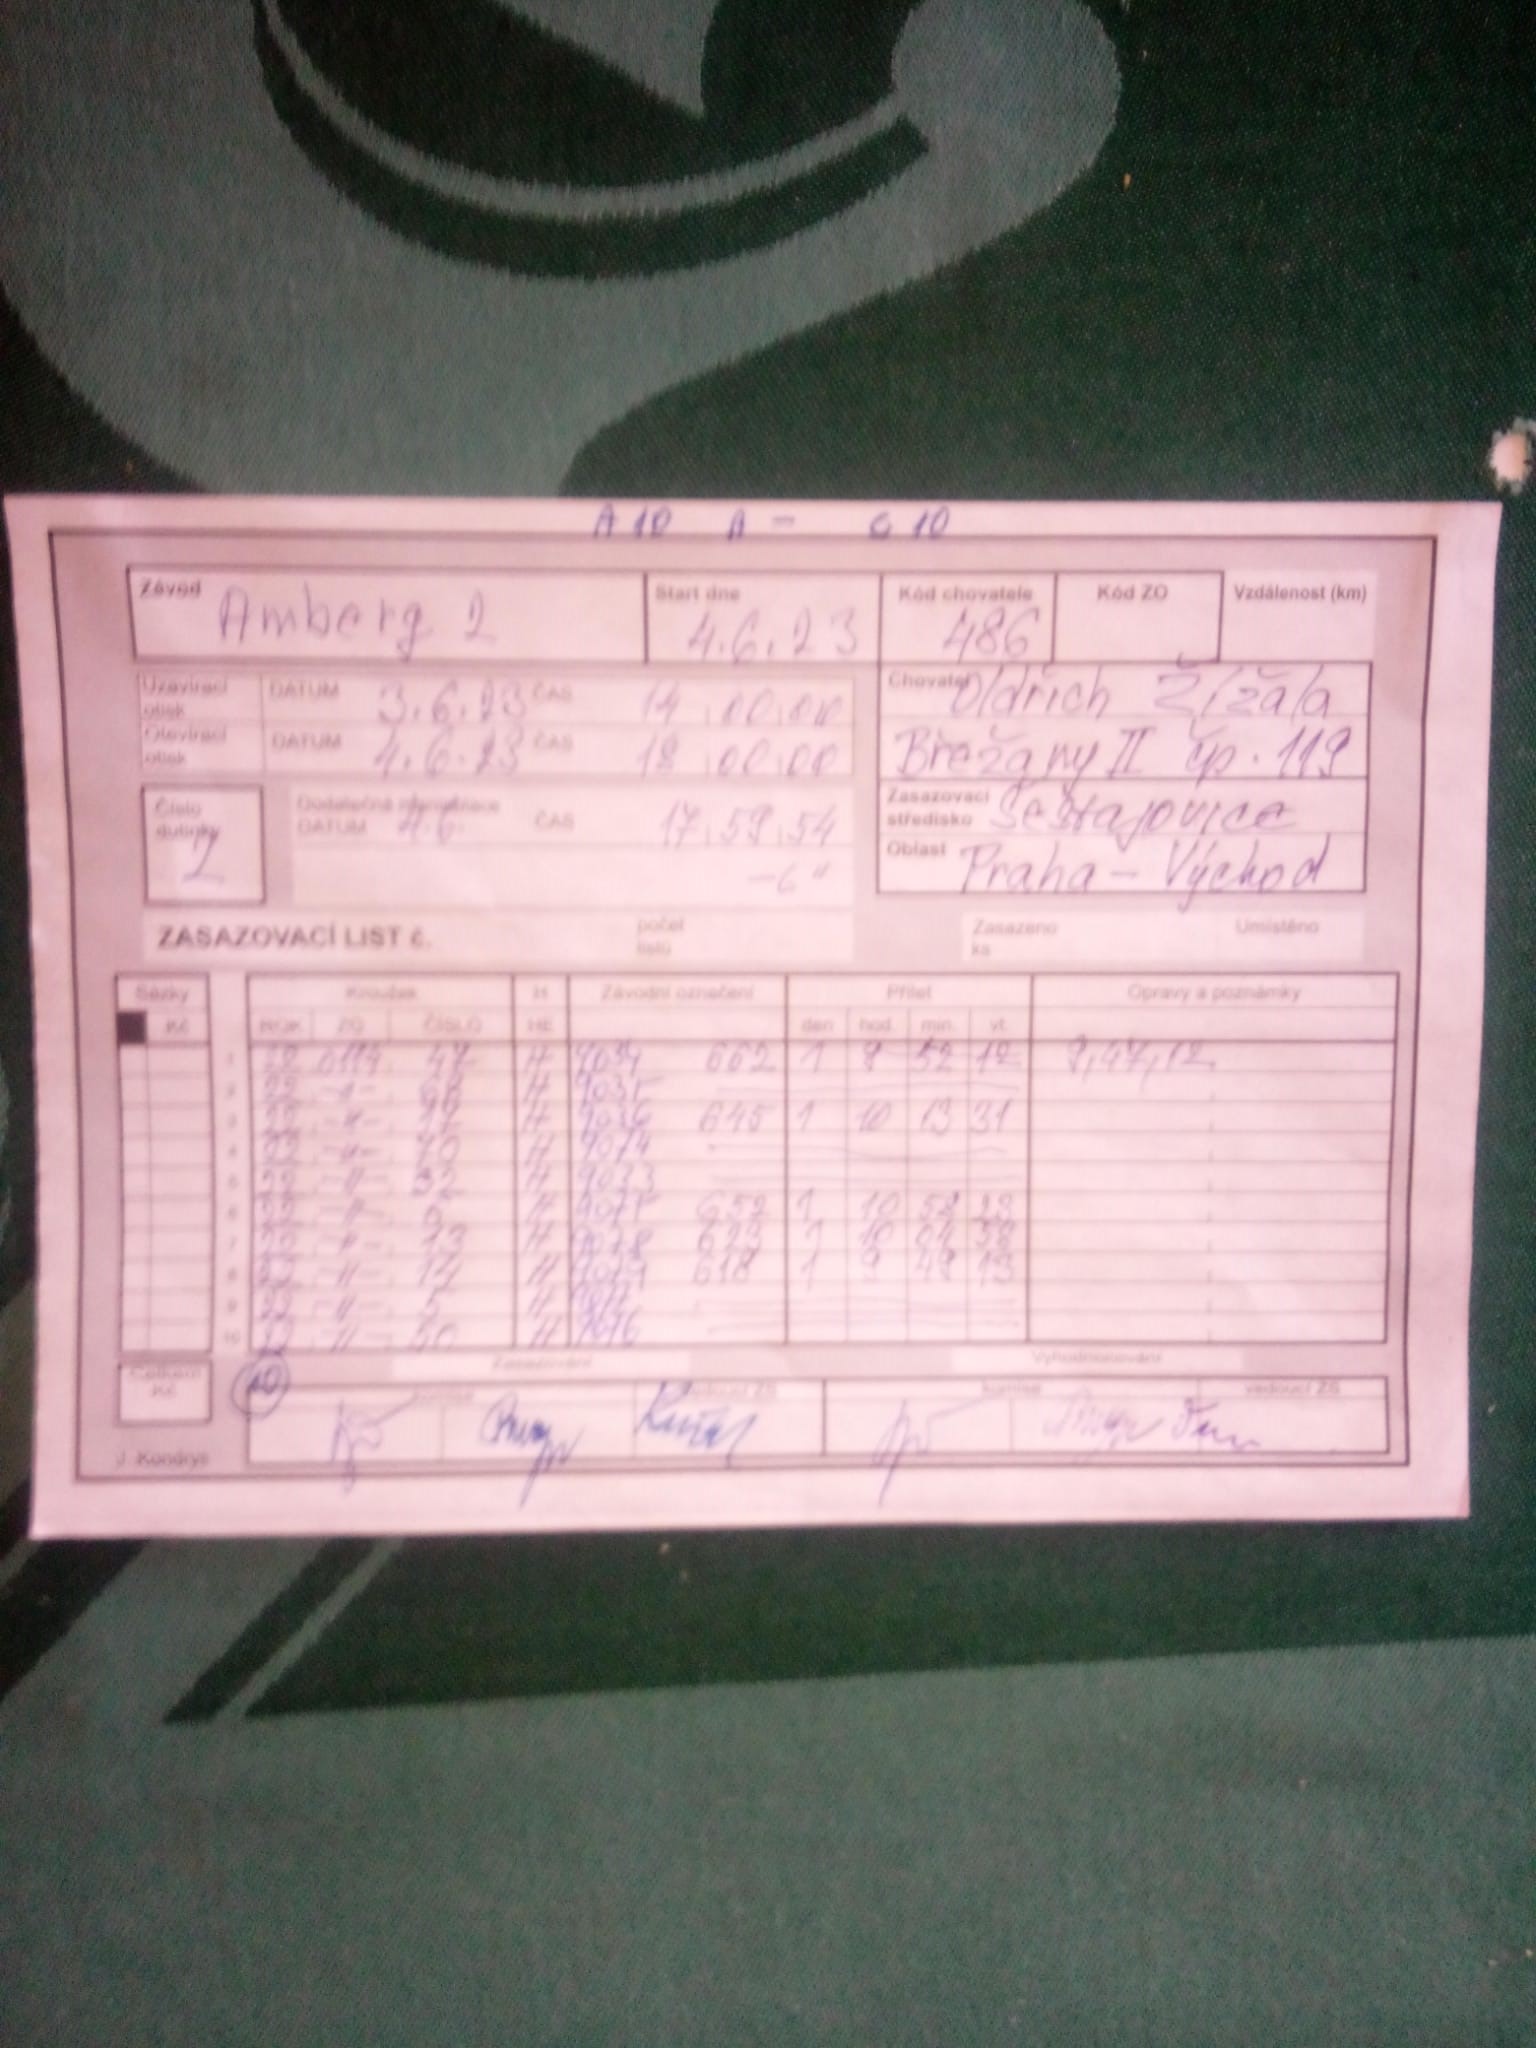 A 10 A - C 10
Závod Amberg 2 Start dne 4.6.23 Kód chovatele 486 Kód ZO Vzdálenost (km)
Uzavírací otisk DATUM 3.6.23 ČAS 14 00 00
Otevírací otisk DATUM 4.6.23 ČAS 18 00 00
Chovatel Oldřich Žížala
Břežany II čp. 119
Číslo dutinky 2
Dodatečná
DATUM 4.6. ČAS 17 59 54
-6"
Zasazovací středisko Šestajovice
Oblast Praha - Východ
ZASAZOVACÍ LIST č. počet listů Zasazeno ks Umístěno
Sázky Kroužek H Závodní označení Přílet Opravy a poznámky
Kč ROK ZO ČÍSLO HE den hod. min. vt.
1 22 0194 47 H 9034 662 1 9 52 12 9,47,12
2 22 -"- H
3 22 -"- H 9036 645 1 10 13 31
4 22 -"- 70 H 9074
5 22 -"- 32 H 9033
6 22 -"- H 652 1 10 58
7 22 -"- 13 H 9078 1 10
8 22 -"- 14 H 618 1 9 49 13
9 22 -"- 5 H
10 22 -"- 50 H 9076
Celkem Kč 10 Zasazování Vyhodnocování
komise vedoucí ZS komise vedoucí ZS
J. Kondrys